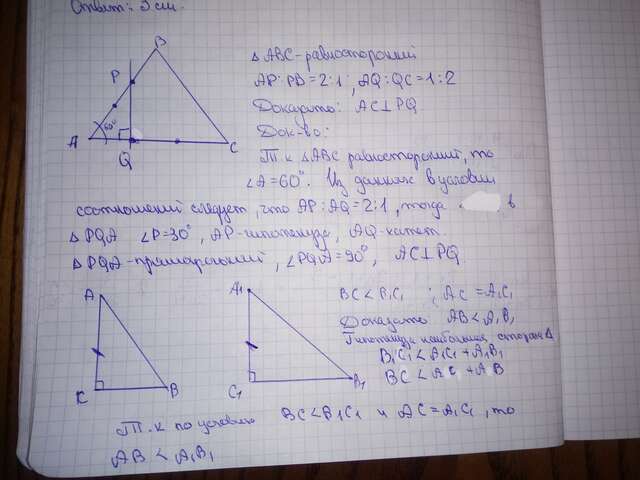 Ответ: 3 см.
B
P
60°
A
Q
C
Δ ABC - равносторонний
AP:PB = 2:1; AQ:QC = 1:2
Доказать: AC⊥PQ
Док-во:
Т.к ΔABC равносторонний, то
∠A = 60°. Из данных в условии
соотношений следует, что AP:AQ = 2:1, тогда в
Δ PQA ∠P=30°, AP-гипотенуза, AQ-катет.
Δ PQA-прямоугольный, ∠PQA=90°, AC⊥PQ.
A
C
B
A₁
C₁
B₁C₁
BC < B₁C₁; AC = A₁C₁
Доказать AB < A₁B₁
Гипотенуза наибольшая сторона Δ
B₁C₁ < A₁C₁ + A₁B₁
BC < AC + AB
Т.к по условию BC < B₁C₁ и AC = A₁C₁, то
AB < A₁B₁